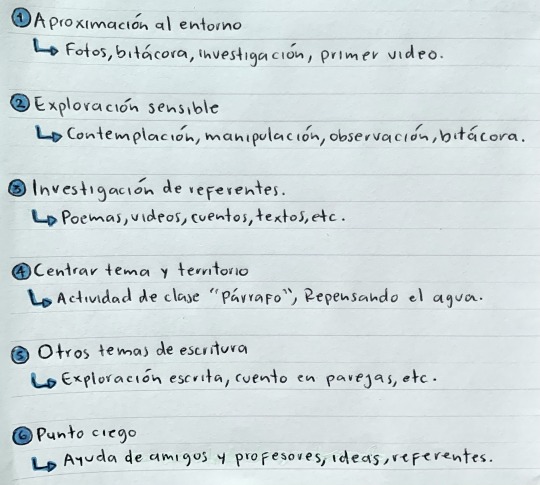 ① Aproximación al entorno
↳ Fotos, bitácora, investigación, primer video.
② Exploración sensible
↳ Contemplación, manipulación, observación, bitácora.
③ Investigación de referentes.
↳ Poemas, videos, cuentos, textos, etc.
④ Centrar tema y territorio
↳ Actividad de clase "Párrafo", Repensando el agua.
⑤ Otros temas de escritura
↳ Exploración escrita, cuento en parejas, etc.
⑥ Punto ciego
↳ Ayuda de amigos y profesores, ideas, referentes.